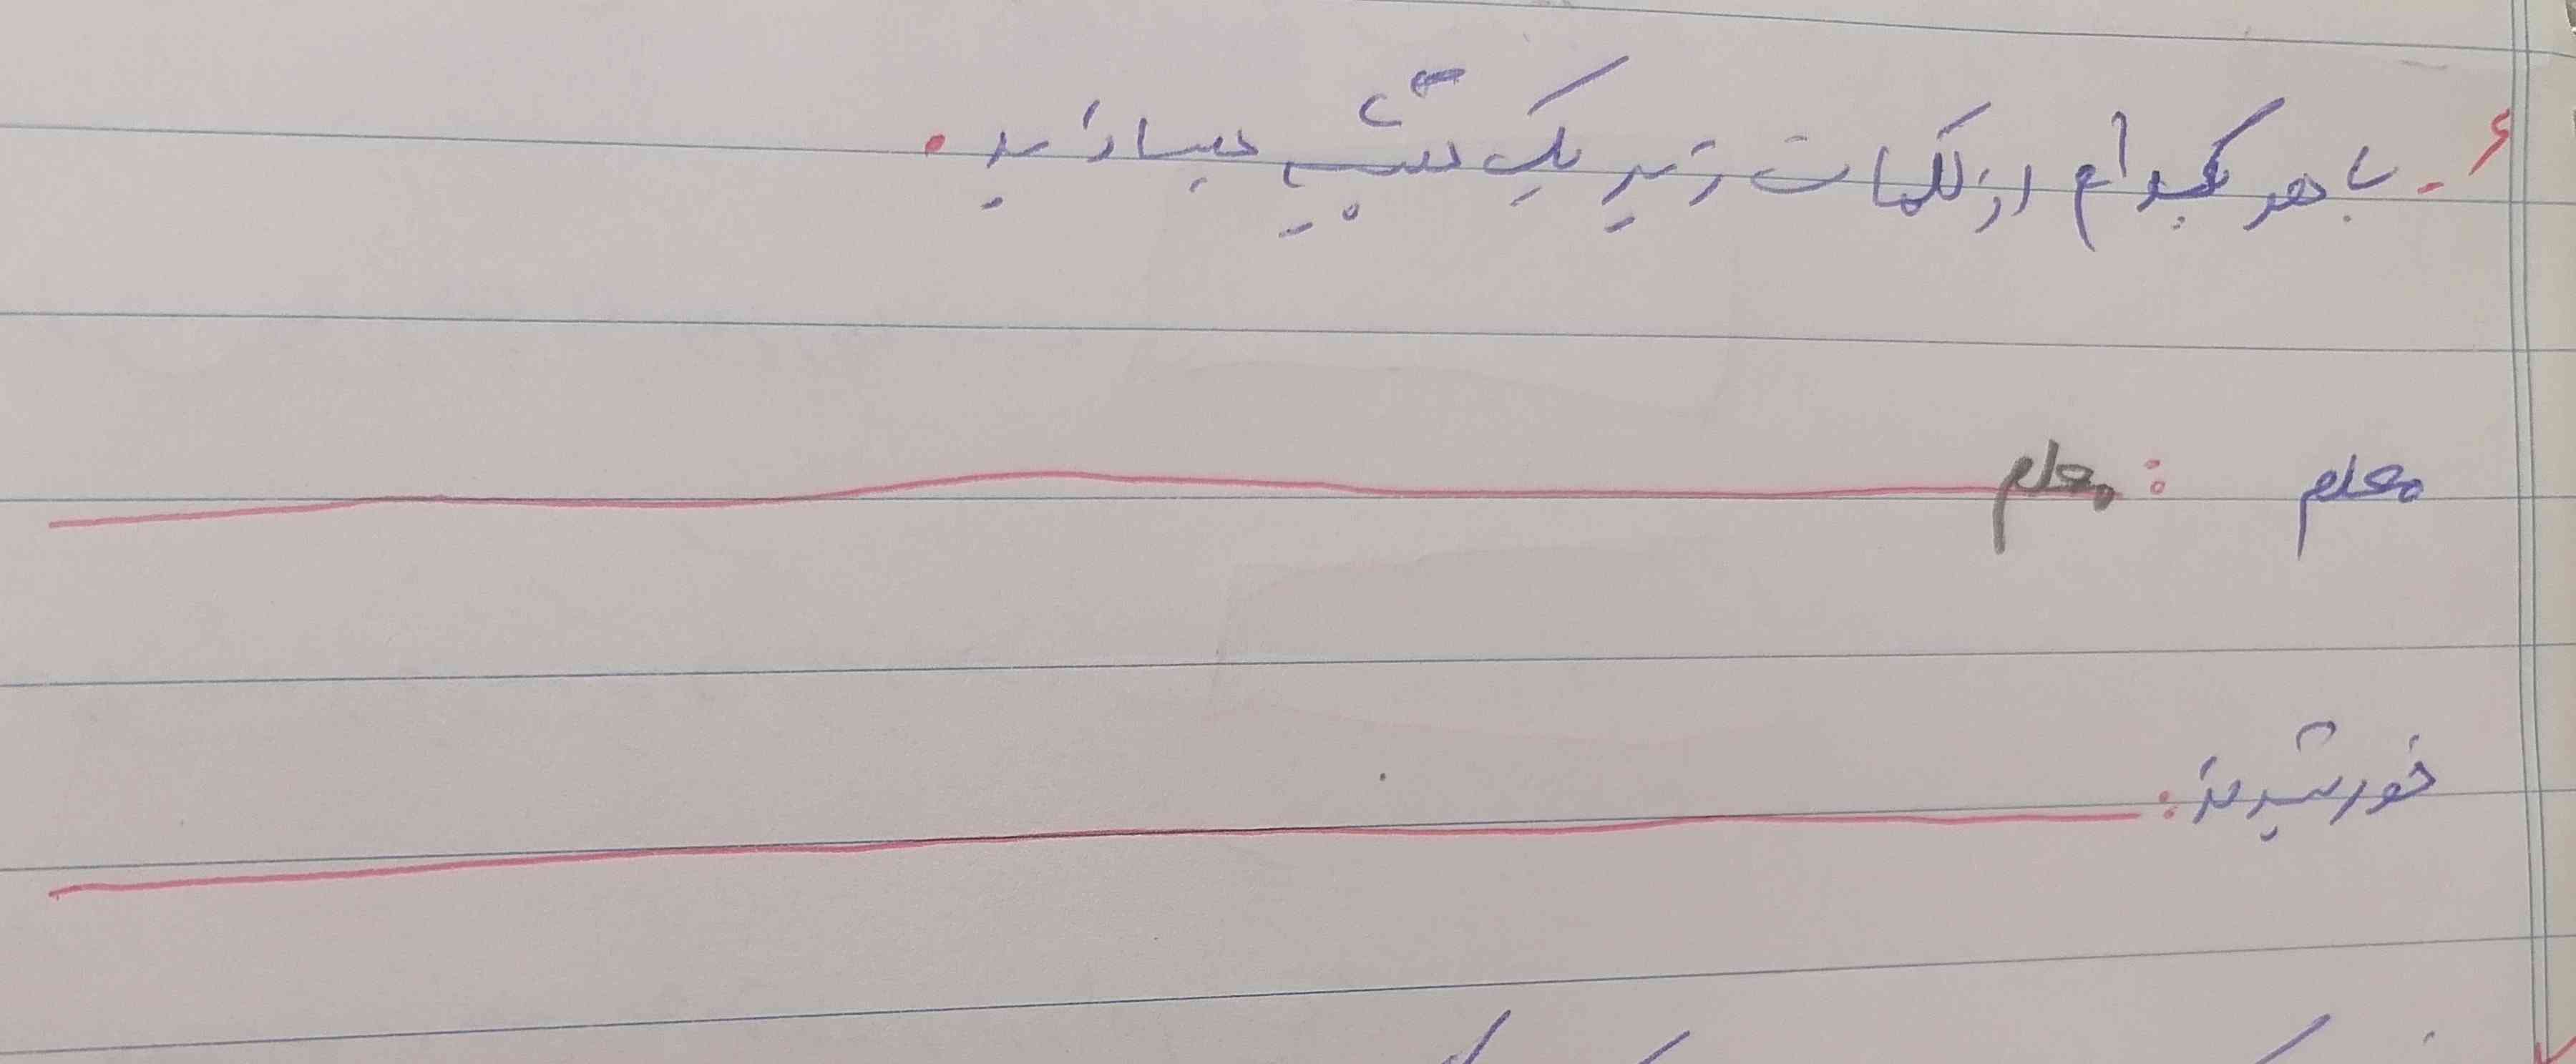 ۶- با هر کدام از کلمات زیر یک تشبیه بسازید.
معلم : معلم
خورشید :